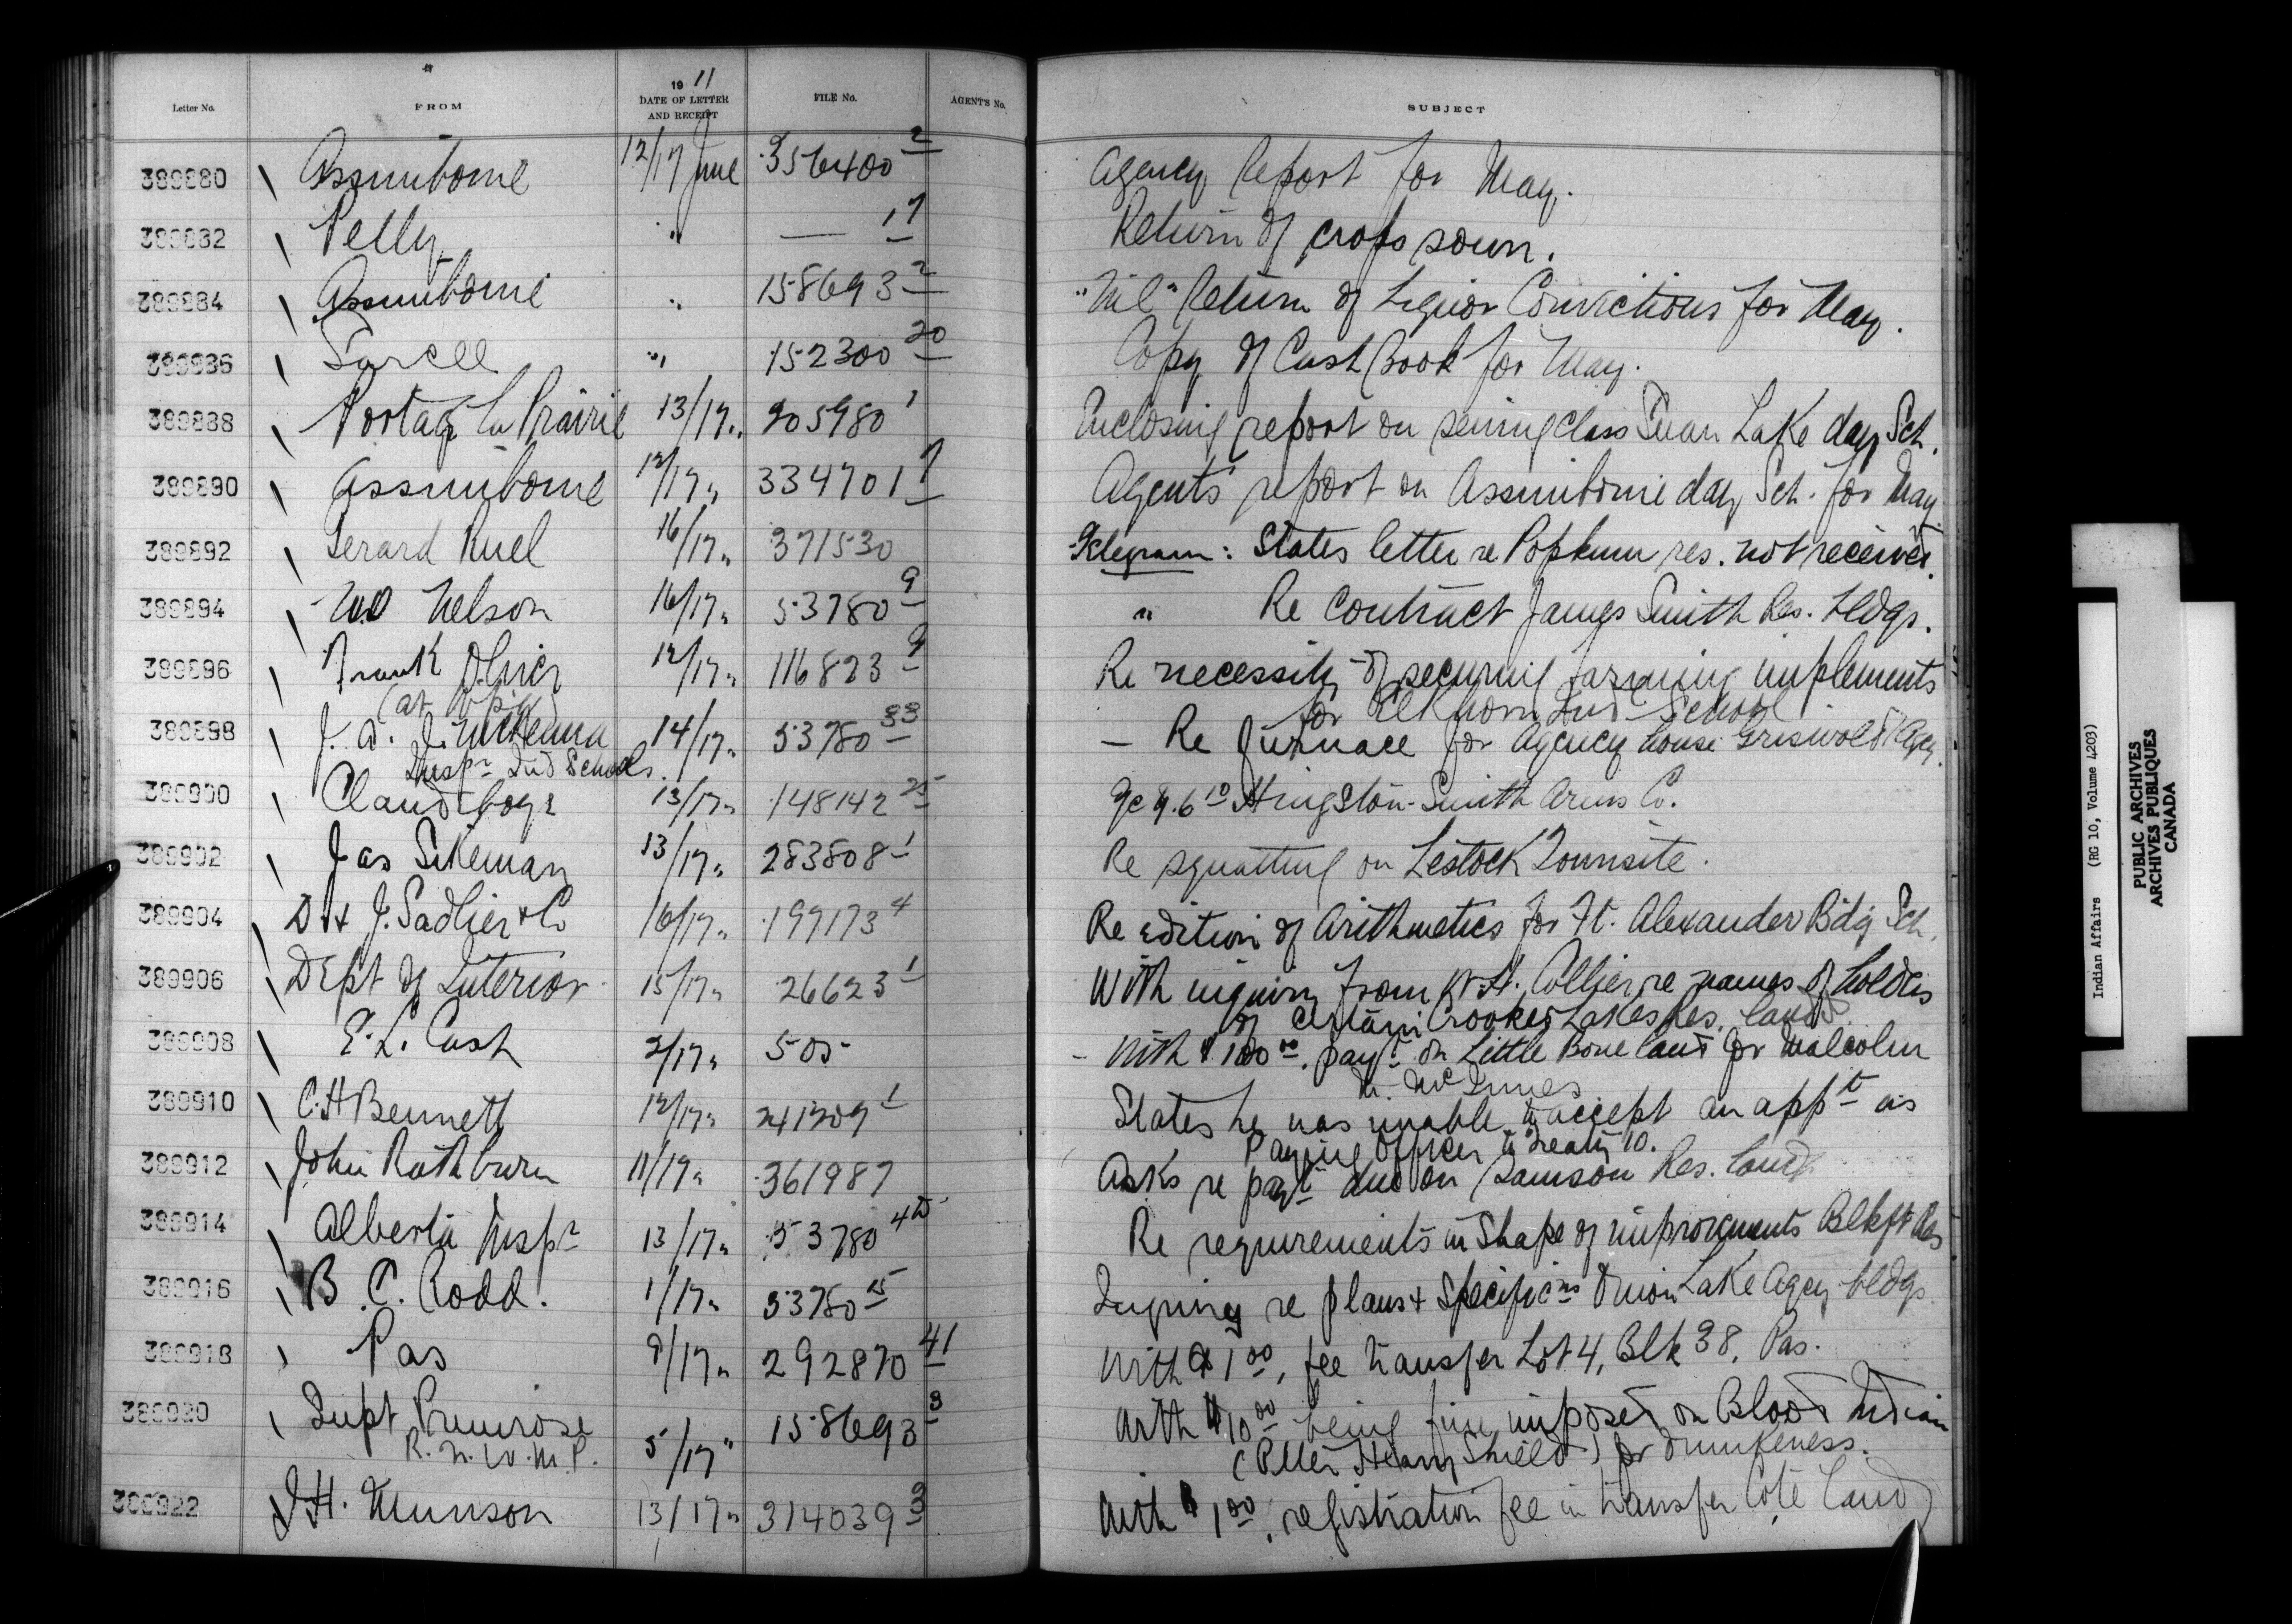 Letter No. FROM 1911 DATE OF LETTER AND RECEIPT FILE No. AGENT'S No. SUBJECT
389880 Assiniboine 12/17 June 356400 2 Agency Report for May.
389882 Pelly " — 17 Return of crops sown.
389884 Assiniboine " 158693 2 "Nil" Return of Liquor Convictions for May.
389886 Sarcee " 152300 20 Copy of Cash Book for May.
389888 Portage la Prairie 13/17 " 205980 1 Enclosing report on sewing class Swan Lake day Sch.
389890 Assiniboine 12/17 " 334701 1 Agents' report on Assiniboine day Sch. for May
389892 Gerard Ruel 16/17 " 371530 Telegram: States letter re Popkum res. not received.
389894 Nelson 16/17 " 53780 9 " Re Contract James Smith Res. bldgs.
389896 Frank Oliver 12/17 " 116823 9 Re necessity of securing farming implements
(at Wpg) for Elkhorn Ind School
389898 J. A. J. McKenna 14/17 " 53780 33 — Re furnace for Agency house Griswold Agcy.
Inspr Ind Schools
389900 Clandeboye 13/17 " 148142 25 Hingston-Smith Arms Co.
389902 Jas Sikeman 13/17 " 283808 1 Re squatting on Lestock Townsite.
389904 D & J. Sadlier & Co 16/17 " 199173 4 Re edition of Arithmetics for Ft. Alexander Bdg Sch.
389906 Dept of Interior 15/17 " 26623 1 With inquiry from H. Collier re names of holders
of certain Crooked Lakes Res. lands
389908 E. L. Cash 2/17 " 505 - With $100 00. payt on Little Bone land for Malcolm
McInnes
389910 C. H Bennett 12/17 " 241209 1 States he was unable to accept an appt as
Paying Officer to Treaty 10.
389912 John Rathburn 11/17 " 361987 Asks re payt due on Samson Res. land
389914 Alberta Inspr 13/17 " 53780 Re requirements in Shape of improvements Blkft Res
389916 B. C. Rodd. 1/17 " 53780 15 Inquiry re plans & Specificns Onion Lake Agcy bldgs
389918 Pas 9/17 " 292870 41 With $1 00, fee transfer Lot 4, Blk 38, Pas.
389920 Supt Primrose 5/17 " 158693 3 With $10 00 being fine imposed on Blood Indian
R. N. W. M. P. (Peter Heavy Shield) for drunkeness.
389922 J H. Munson 13/17 " 314039 3 With $1 00, registration fee in transfer Coté land
Indian Affairs (RG 10, Volume 4203)
PUBLIC ARCHIVES
ARCHIVES PUBLIQUES
CANADA